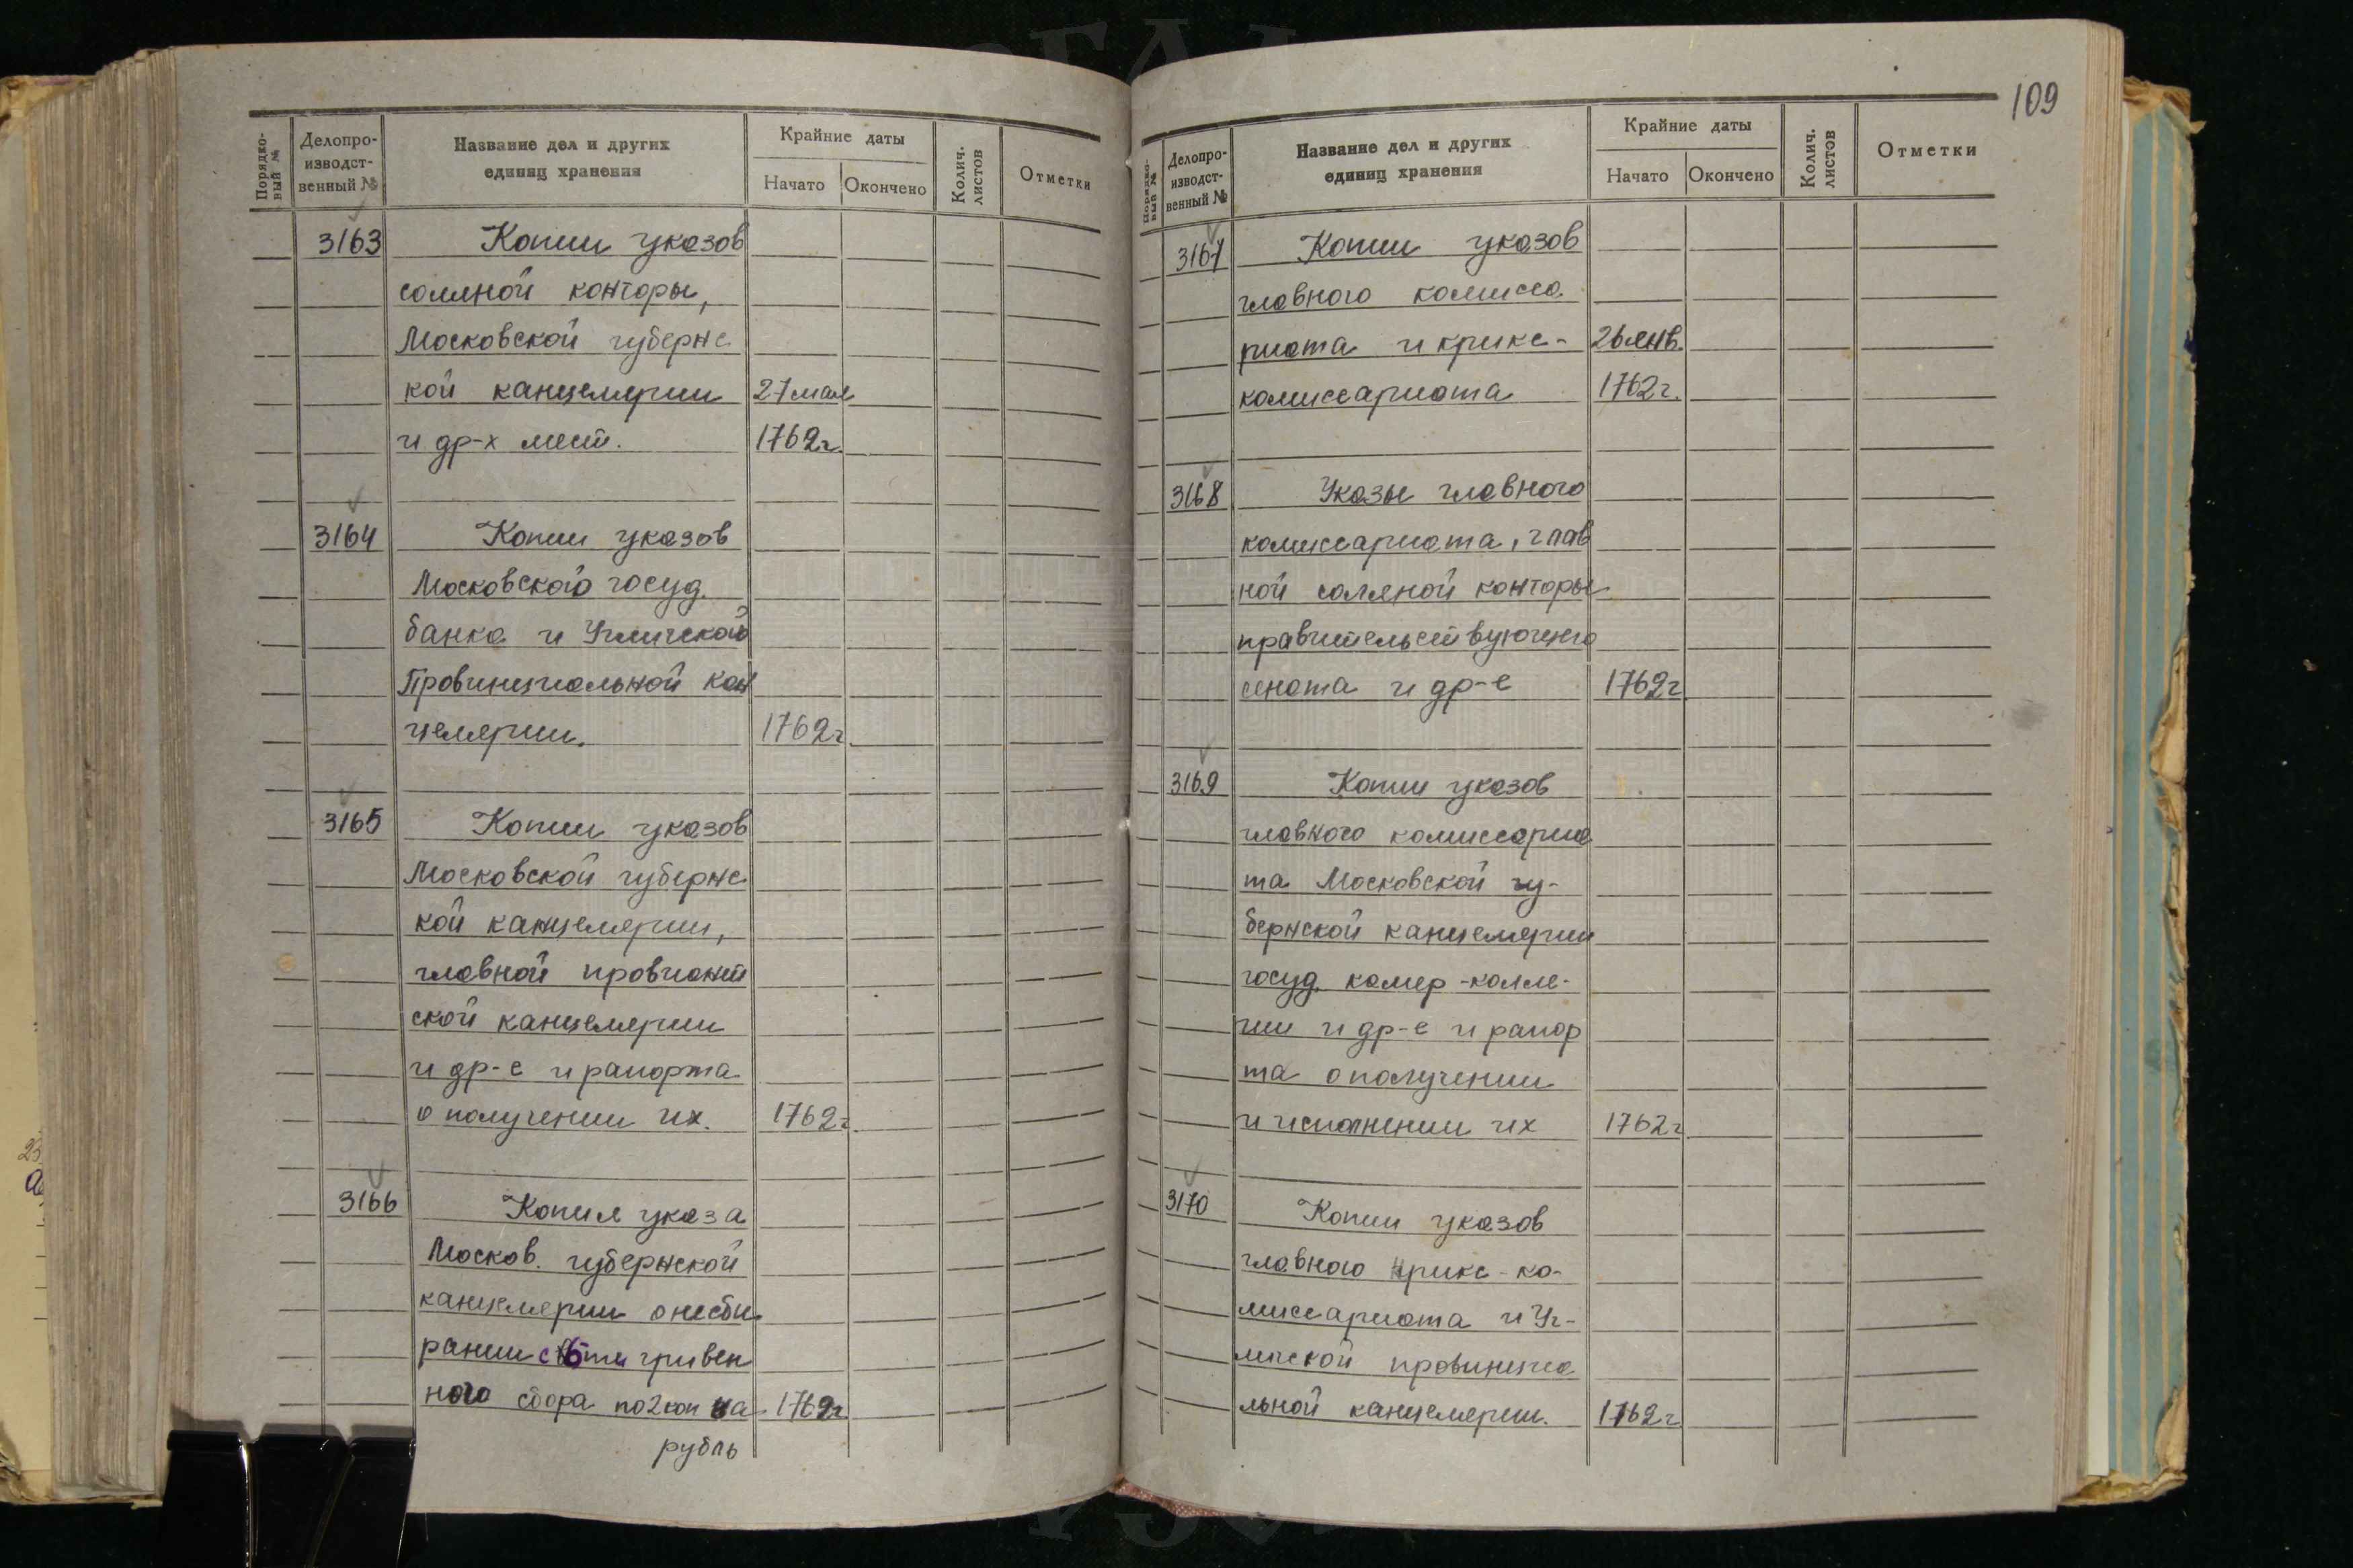 109
Порядко-
вый №
Делопро-
изводст-
венный №
Название дел и других
единиц хранения
Крайние даты
Начато
Окончено
Колич.
листов
Отметки
3163 Копии указов
соляной конторы,
Московской губернс
кой канцелярии 27 мая
и др-х мест. 1762 г.
3164 Копии указов
Московского госуд.
банка и Угличской
Провинциальной кан
целярии. 1762 г
3165 Копии указов
Московской губернс
кой канцелярии,
главной провиант
ской канцелярии
и др-е и рапорта
о получении их. 1762 г.
3166 Копия указа
Москов. губернской
канцелярии о несби
рании с гривен
ного сбора по 2 коп на 1762 г.
рубль
Порядко-
вый №
Делопро-
изводст-
венный №
Название дел и других
единиц хранения
Крайние даты
Начато
Окончено
Колич.
листов
Отметки
3167 Копии указов
главного комисса
риата и крикс- 26 янв.
комиссариата 1762 г.
3168 Указы главного
комиссариата, глав
ной соляной конторы
правительствующего
сената и др-е 1762 г
3169 Копии указов
главного комиссариа
та Московской гу-
бернской канцелярии
госуд. камер-колле-
гии и др-е и рапор
та о получении
и исполнении их 1762 г
3170 Копии указов
главного крикс-ко-
миссариата и Уг-
личской провинциа
льной канцелярии. 1762 г